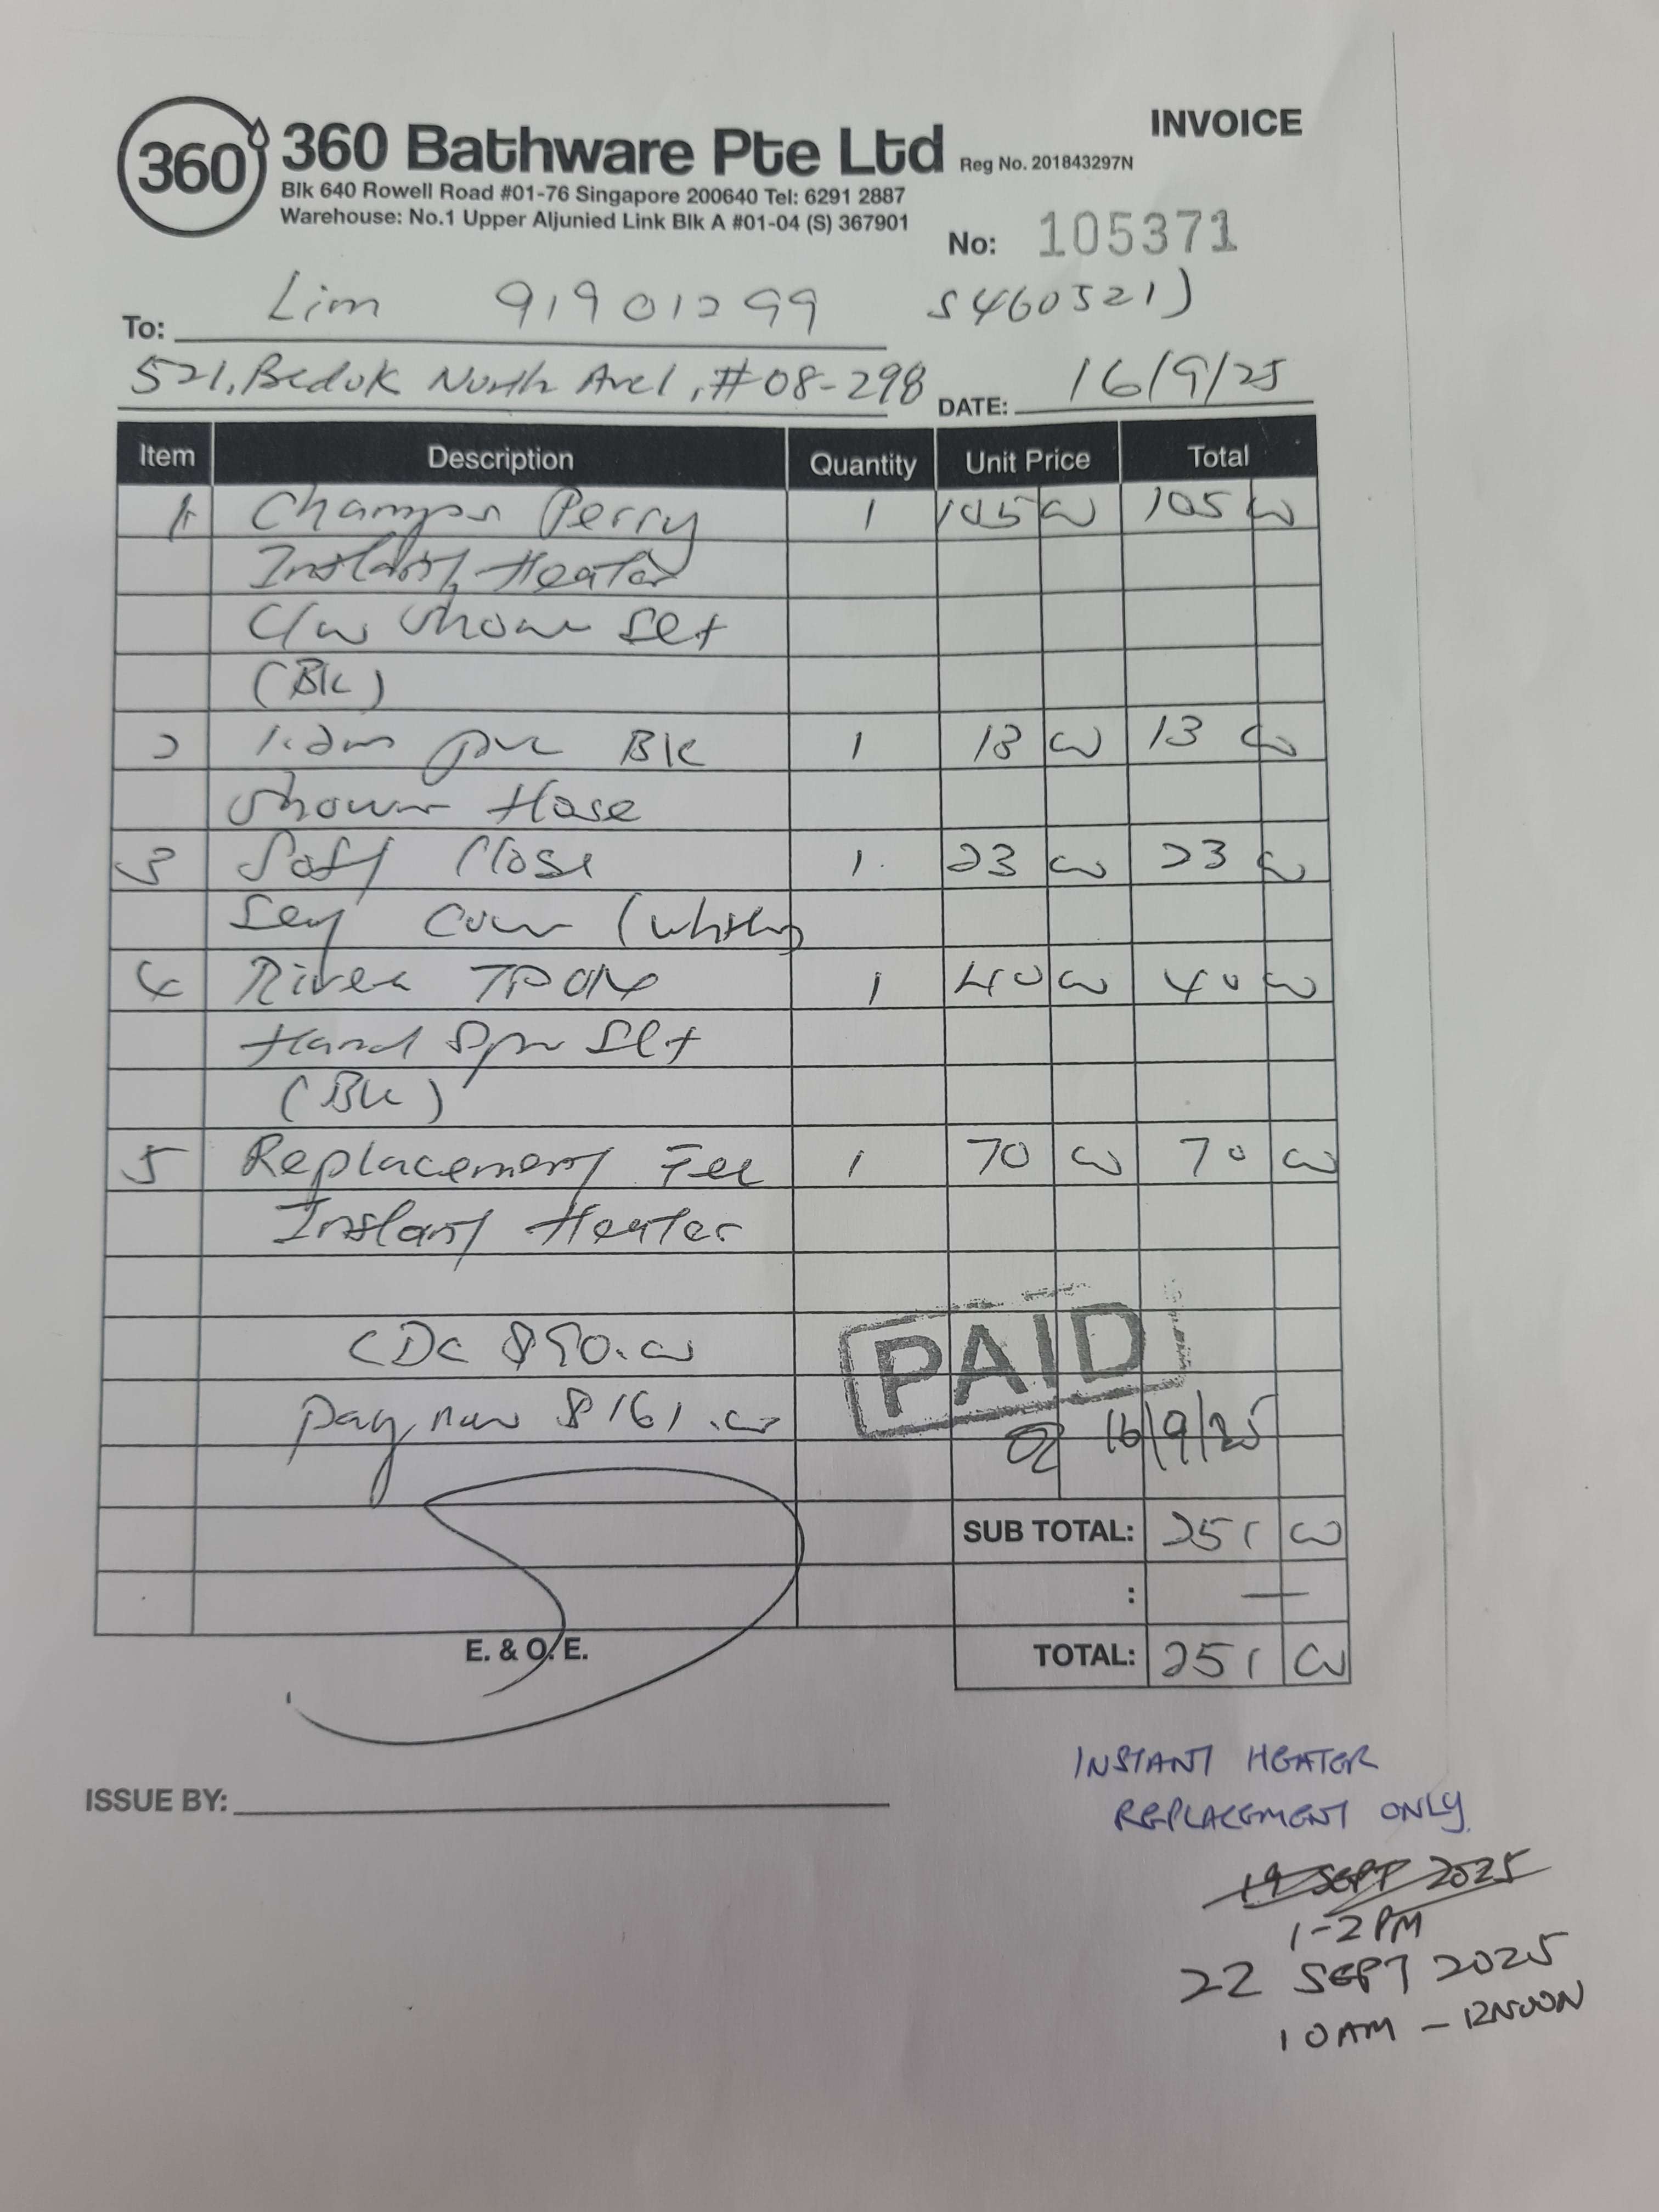 360
360 Bathware Pte Ltd Reg No. 201843297N
INVOICE
Blk 640 Rowell Road #01-76 Singapore 200640 Tel: 6291 2887
Warehouse: No.1 Upper Aljunied Link Blk A #01-04 (S) 367901
No: 105371
To: Lim 91901299 S460521)
521, Bedok North Ave1, #08-298 DATE: 16/9/25
Item Description Quantity Unit Price Total
1 Champs Perry 1 105 00 105 00
Instant Heater
C/w Shower Set
(Blk)
2 1.2m pvc Blk 1 13 00 13 00
Shower Hose
3 Soft Close 1 23 00 23 00
Seat Cover (White)
4 1 40 00 40 00
Hand Set
(Blk)
5 Replacement Fee 1 70 00 70 00
Instant Heater
CDC $90.00
PAID
Paynow $161.00
16/9/25
SUB TOTAL: 251 00
: —
TOTAL: 251 00
E. & O. E.
INSTANT HEATER
REPLACEMENT ONLY.
ISSUE BY:
19 SEPT 2025
1-2PM
22 SEPT 2025
10AM - 12NOON